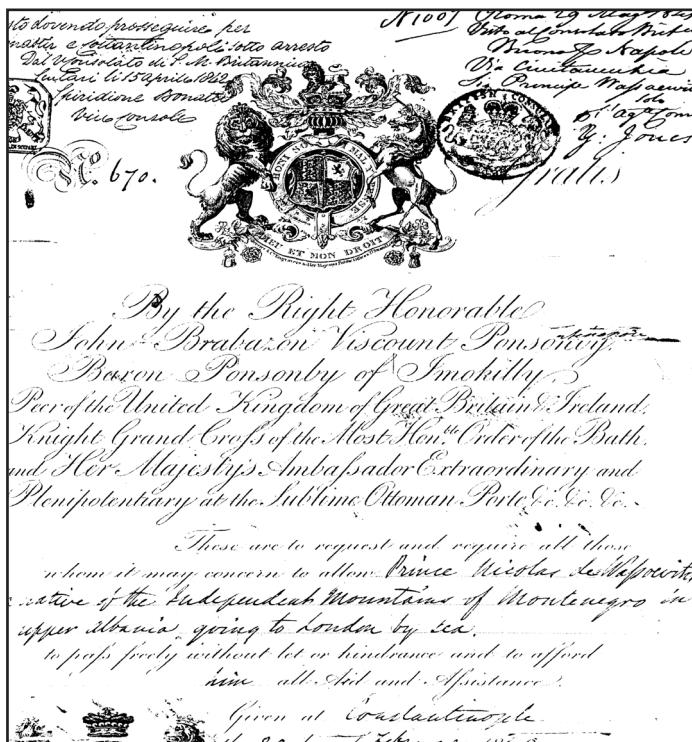 to dovendo proseguire per
e Costantinopoli sotto arresto
Dal Consolato di S. M. Britannica
Scutari li 15 aprile 1842
Spiridione Bonatti
Vice Console
No. 670.
N 1007 Roma 29
Buono p Napoli
Via Civitavecchia
Principe
solo
Jones
BRITISH CONSUL
Gratis
HONI MAL Y PENSE
DIEU ET MON DROIT
By the Right Honorable
John Brabazon Viscount Ponsonby,
Baron Ponsonby of Imokilly,
Peer of the United Kingdom of Great Britain & Ireland,
Knight Grand Cross of the Most Hon.ble Order of the Bath,
and Her Majesty's Ambassador Extraordinary and
Plenipotentiary at the Sublime Ottoman Porte &c. &c. &c.
These are to request and require all those
whom it may concern to allow Prince Nicolas de Wassoevitch
native of the Independent Mountains of Montenegro in
upper Albania, going to London by sea.
to pass freely without let or hindrance and to afford
him all Aid and Assistance.
Given at Constantinople